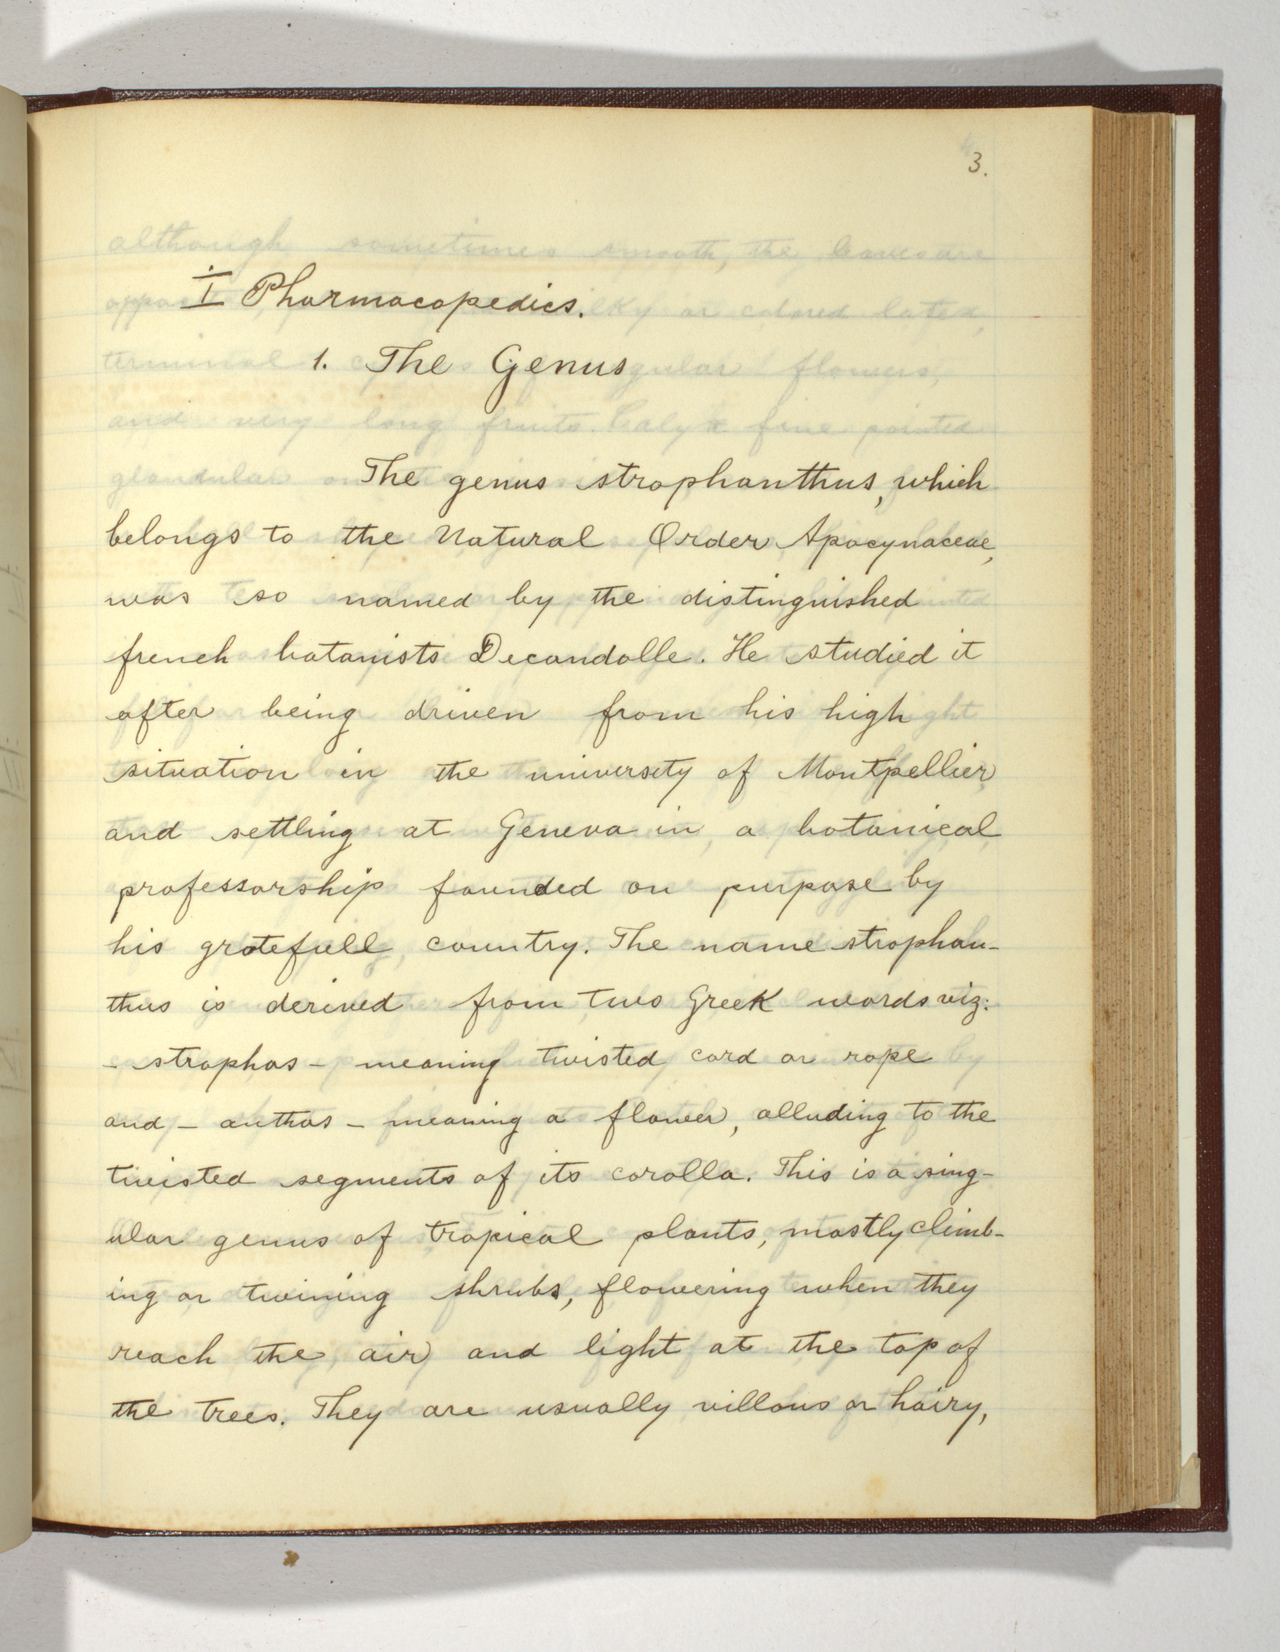 3.
I Pharmacopedics.
1. The Genus
The genus strophanthus, which
belongs to the Natural Order Apocynaceae,
was so named by the distinguished
french botanists Decandolle. He studied it
after being driven from his high
situation in the university of Montpellier
and settling at Geneva in a botanical
professorship founded on purpose by
his gratefull country. The name strophan-
thus is derived from two Greek words viz:
- strophos - meaning twisted cord or rope
and - anthos - meaning a flower, alluding to the
twisted segments of its corolla. This is a sing-
ular genus of tropical plants, mostly climb-
ing or twining shrubs, flowering when they
reach the air and light at the top of
the trees. They are usually villous or hairy,